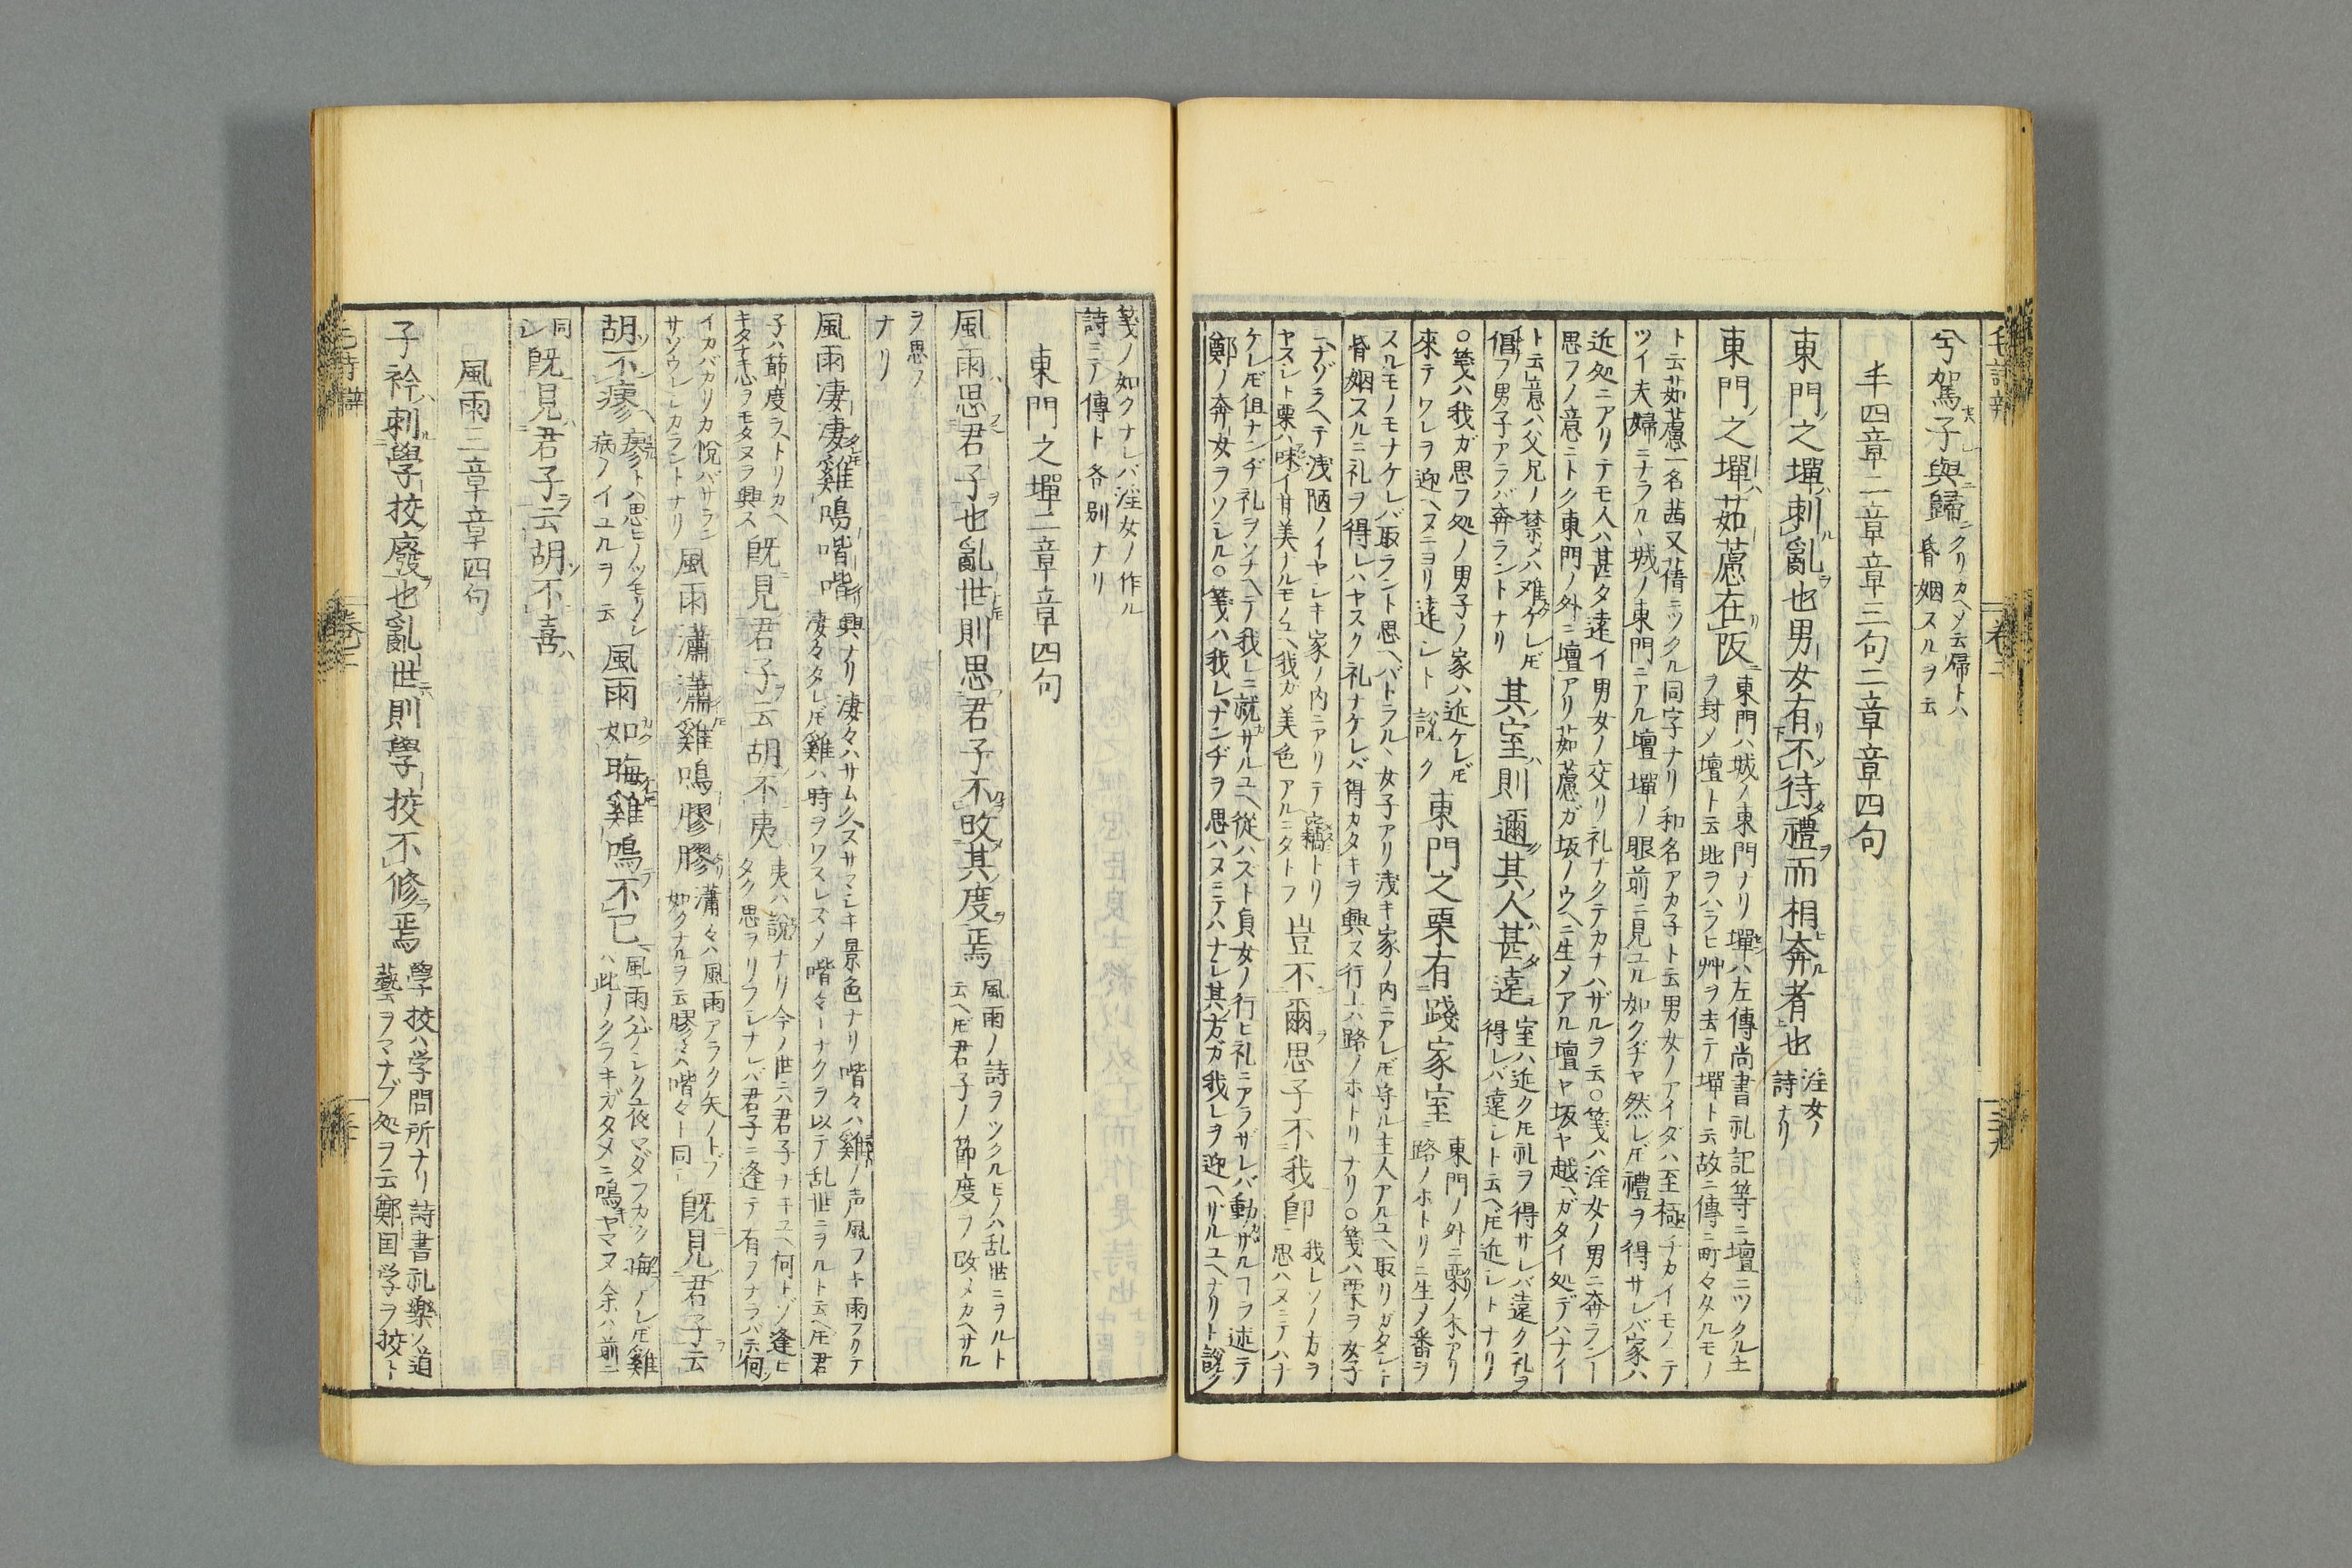 兮駕予與歸
昏姻スルヲ云
丰四章二章章三句二章章四句
東門之墠刺亂也男女有不待禮而相奔者也
淫女ノ
詩ナリ
東門之墠茹藘在阪
東門ハ城ノ東門ナリ墠ハ左傳尚書礼記等ニ壇ニツクル土
ヲ封メ壇ト云地ヲハラヒ艸ヲ去テ墠ト云故ニ傳ニ町々タルモノ
ト云茹藘一名茜又蒨ニツクル同字ナリ和名アカ子ト云男女ノアイダハ至極チカイモノテ
ツイ夫婦ニナラルヽ城ノ東門ニアル壇墠ノ眼前ニ見ユル如クヂヤ然レ𪜈禮ヲ得サレバ家ハ
近処ニアリテモ人ハ甚タ遠イ男女ノ交リ礼ナクテカナハザルヲ云○箋ハ淫女ノ男ニ奔ラン
思フノ意ニトク東門ノ外ニ壇アリ茹藘ガ坂ノウヘニ生メアル壇ヤ坂ヤ越ヘガタイ処デハナイ
ト云意ハ父兄ノ禁メハ难ケレ𪜈
倡フ男子アラバ奔ラントナリ
其室則邇其人甚遠
室ハ近ク𪜈礼ヲ得サレバ遠ク礼ヲ
得レバ遠シト云ヘ𪜈近シトナリ
○箋ハ我ガ思フ処ノ男子ノ家ハ近ケレ𪜈
來テワレヲ迎ヘヌニヨリ遠シト說ク
東門之栗有踐家室
東門ノ外ニ栗ノ木アリ
路ノホトリニ生メ番ヲ
スルモノモナケレバ取ラント思ヘバトラルヽ女子アリ浅キ家ノ内ニアレ𪜈守ル主人アルユヘ取リガタシ
昏姻スルニ礼ヲ得レハヤスク礼ナケレバ得カタキヲ興ス行上ハ路ノホトリナリ○箋ハ栗ヲ女子
ニナゾラヘテ浅陋ノイヤシキ家ノ内ニアリテ竊トリ
ヤスシト栗ハ味イ甘美ノルモノユヘ我ガ美色アルニタトフ
豈不爾思子不我卽
我レソノ方ヲ
思ハヌニテハナ
ケレ𪜈但ナンヂ礼ヲソナヘテ我レニ就サルユヘ從ハスト貞女ノ行ヒ礼ニアラザレバ動ザルヿヲ述テ
鄭ノ奔女ヲソシル○箋ハ我レナンヂヲ思ハヌニテハナレ其方ガ我レヲ迎ヘザルユヘナリト說ク
箋ノ如クナレバ淫女ノ作ル
詩ニテ傳ト各別ナリ
東門之墠二章章四句
風雨思君子也亂世則思君子不改其度焉
風雨ノ詩ヲツクルヒハ乱世ニヲルト
云ヘ𪜈君子ノ節度ヲ改メカヘサル
ヲ思フ
ナリ
風雨凄凄雞鳴喈喈
興ナリ凄々ハサムクスサマシキ景色ナリ喈々ハ雞ノ声風フト雨フクテ
凄々タレ𪜈雞ハ時ヲワスレスメ喈々ーナクヲ以テ乱世ニヲルト云ヘ𪜈君
子ハ節度ヲトリカヘ
キタナキ志ヲモタヌヲ興ス
既見君子云胡不夷
夷ハ說ナリ今ノ世ニハ君子ナキユヘ何トゾ逢ヒ
タク思ヲリフシナレバ君子ニ逢テ有ヲナラバ云何
イカバカリカ悅バサラン
サゾウレシカラントナリ
風雨瀟瀟雞鳴膠膠
瀟々ハ風雨アラク矢ノトブ
如クナルヲ云膠々ハ喈々ー同シ
既見君子云
胡不瘳
瘳トハ思ヒノツモリノシ
病ノイユルヲ云
風雨如晦雞鳴不已
風雨ハゲシク夜マダフカク晦ノレ𪜈雞
ハ此ノクラキガタメニ鳴ヤマヌ余ハ前ニ
同
シ
既見君子云胡不喜
風雨三章章四句
子衿刺學校廢也亂世則學校不修焉
學校ハ学問所ナリ詩書礼樂ノ道
藝ヲマナブ処ヲ云鄭国学ヲ校ト